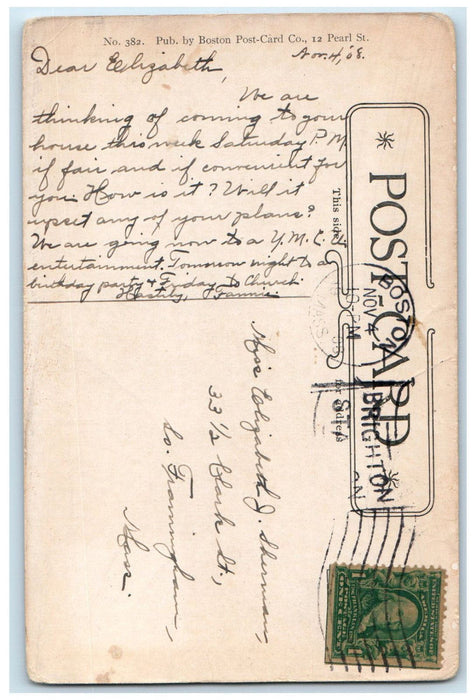 No. 382. Pub. by Boston Post-Card Co., 12 Pearl St.
Nov. 4, '08.
Dear Elizabeth,
We are
thinking of coming to your
house this week Saturday P.M.
if fair and if convenient for
you. How is it? Will it
upset any of your plans?
We are going now to a Y.M.C.A.
entertainment. Tomorrow night to a
birthday party & Friday to Church.
Hastily, Fannie
POST-CARD
This side
for address
BOSTON
NOV 4
10-PM
MASS.
BRIGHTON
STA
Miss Elizabeth J. Sherman,
33 1/2 Clark St.,
So. Framingham,
Mass.